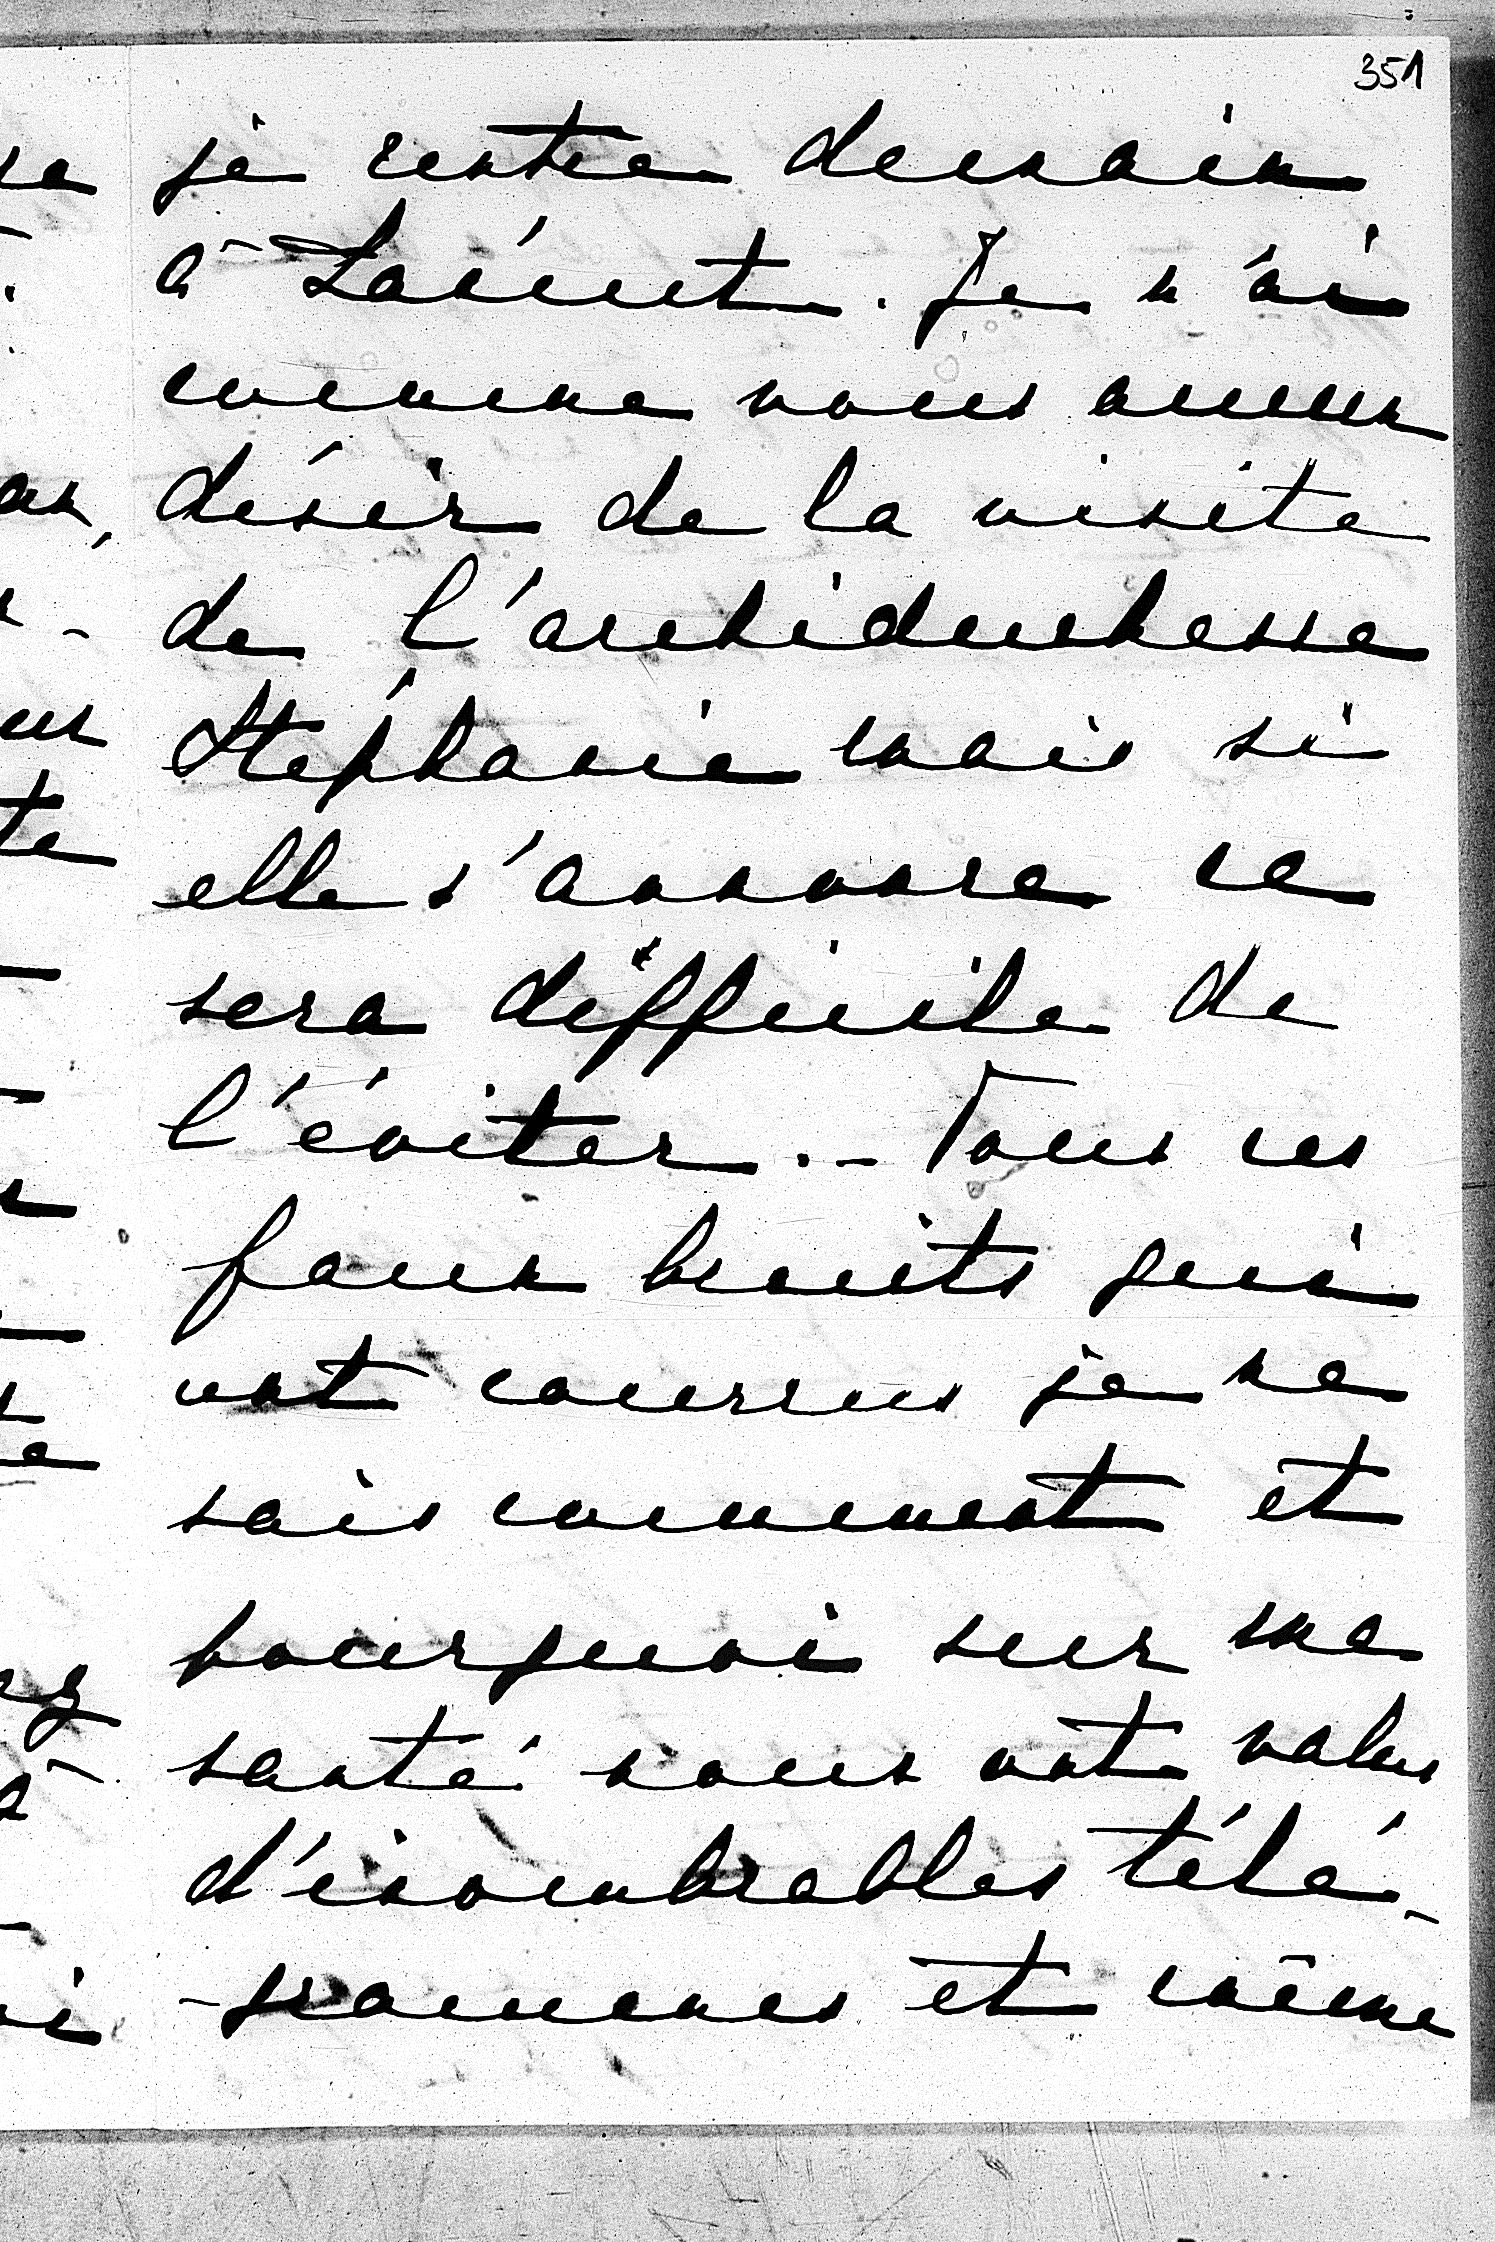 351
je rentre demain
à Laeiut. Je n'ai
comme vous aucun
désir de la visite
de l'archiduchesse
Stéphanie mais si
elle s'annonce ce
sera difficile de
l'éviter. – Tous ces
faux bruits qui
ont courrus je ne
sais comment et
pourquoi sur ma
santé nous ont valus
d'énombrables télé-
-grammes et même